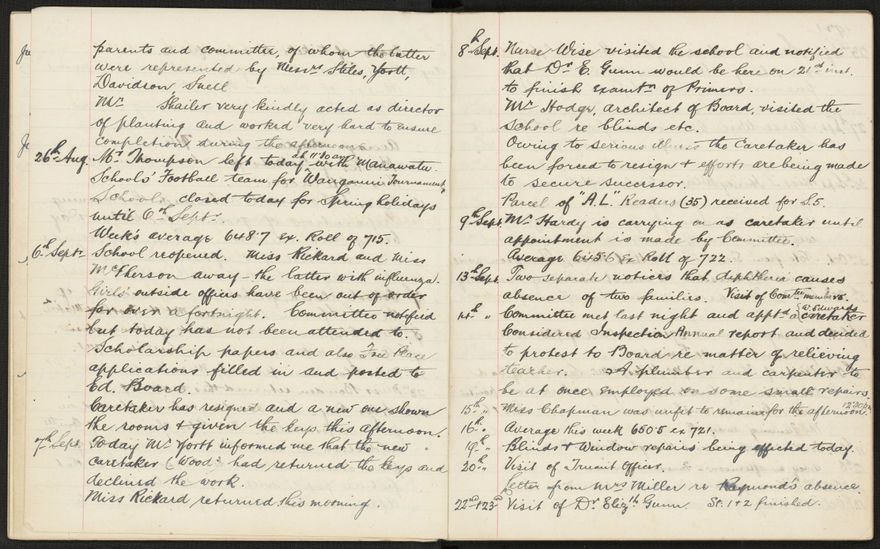 parents and committee, of whom the latter
were represented by Messrs Stiles, Yortt,
Davidson, Snell
Mr Shailer very kindly acted as director
of planting and worked very hard to ensure
completion during the afternoon.
26th Aug. Mr Thompson left today at 11 30 am with Manawatu
Schools' Football team for "Wanganui Tournament"
Schools closed today for Spring holidays
until 6th Sept.
Week's average 648.7 ex. Roll of 715.
6th Sept. School reopened. Miss Rickard and Miss
McPherson away - the latter with influenza.
Girls' outside offices have been out of order
for over a fortnight. Committee notified
but today has not been attended to.
Scholarship papers and also Free Place
applications filled in and posted to
Ed. Board.
Caretaker has resigned and a new one shown
the rooms & given the keys this afternoon.
7th Sept. Today Mr Yortt informed me that the new
caretaker (Wood) had returned the keys and
declined the work.
Miss Rickard returned this morning.
8th Sept. Nurse Wise visited the school and notified
that Dr E. Gunn would be here on 21st inst.
to finish examtn of Primers.
Mr Hodge, architect of Board, visited the
school re blinds etc.
Owing to serious illness the Caretaker has
been forced to resign & efforts are being made
to secure successor.
Parcel of "A.L." Readers (35) received for S.5.
9th Sept. Mr Hardy is carrying on as caretaker until
appointment is made by Committee.
Average 645.6 ex Roll of 722
13th Sept. Two separate notices that diphtheria causes
absence of two families. Visit of Comtee members.
14th " Committee met last night and apptd a caretaker (W. Edwards)
Considered Inspection Annual report and decided
to protest to Board re matter of relieving
teacher. A plumber and carpenter to
be at once employed on some small repairs.
15th " Miss Chapman was unfit to remain for the afternoon.
16th " Average this week 650.5 ex 721.
19th " Blinds & Window repairs being effected today.
20th " Visit of Truant Officer.
Letter from Mrs Miller re Raymond's absence.
22nd & 23rd Visit of Dr Elizth Gunn St. 1 & 2 finished.